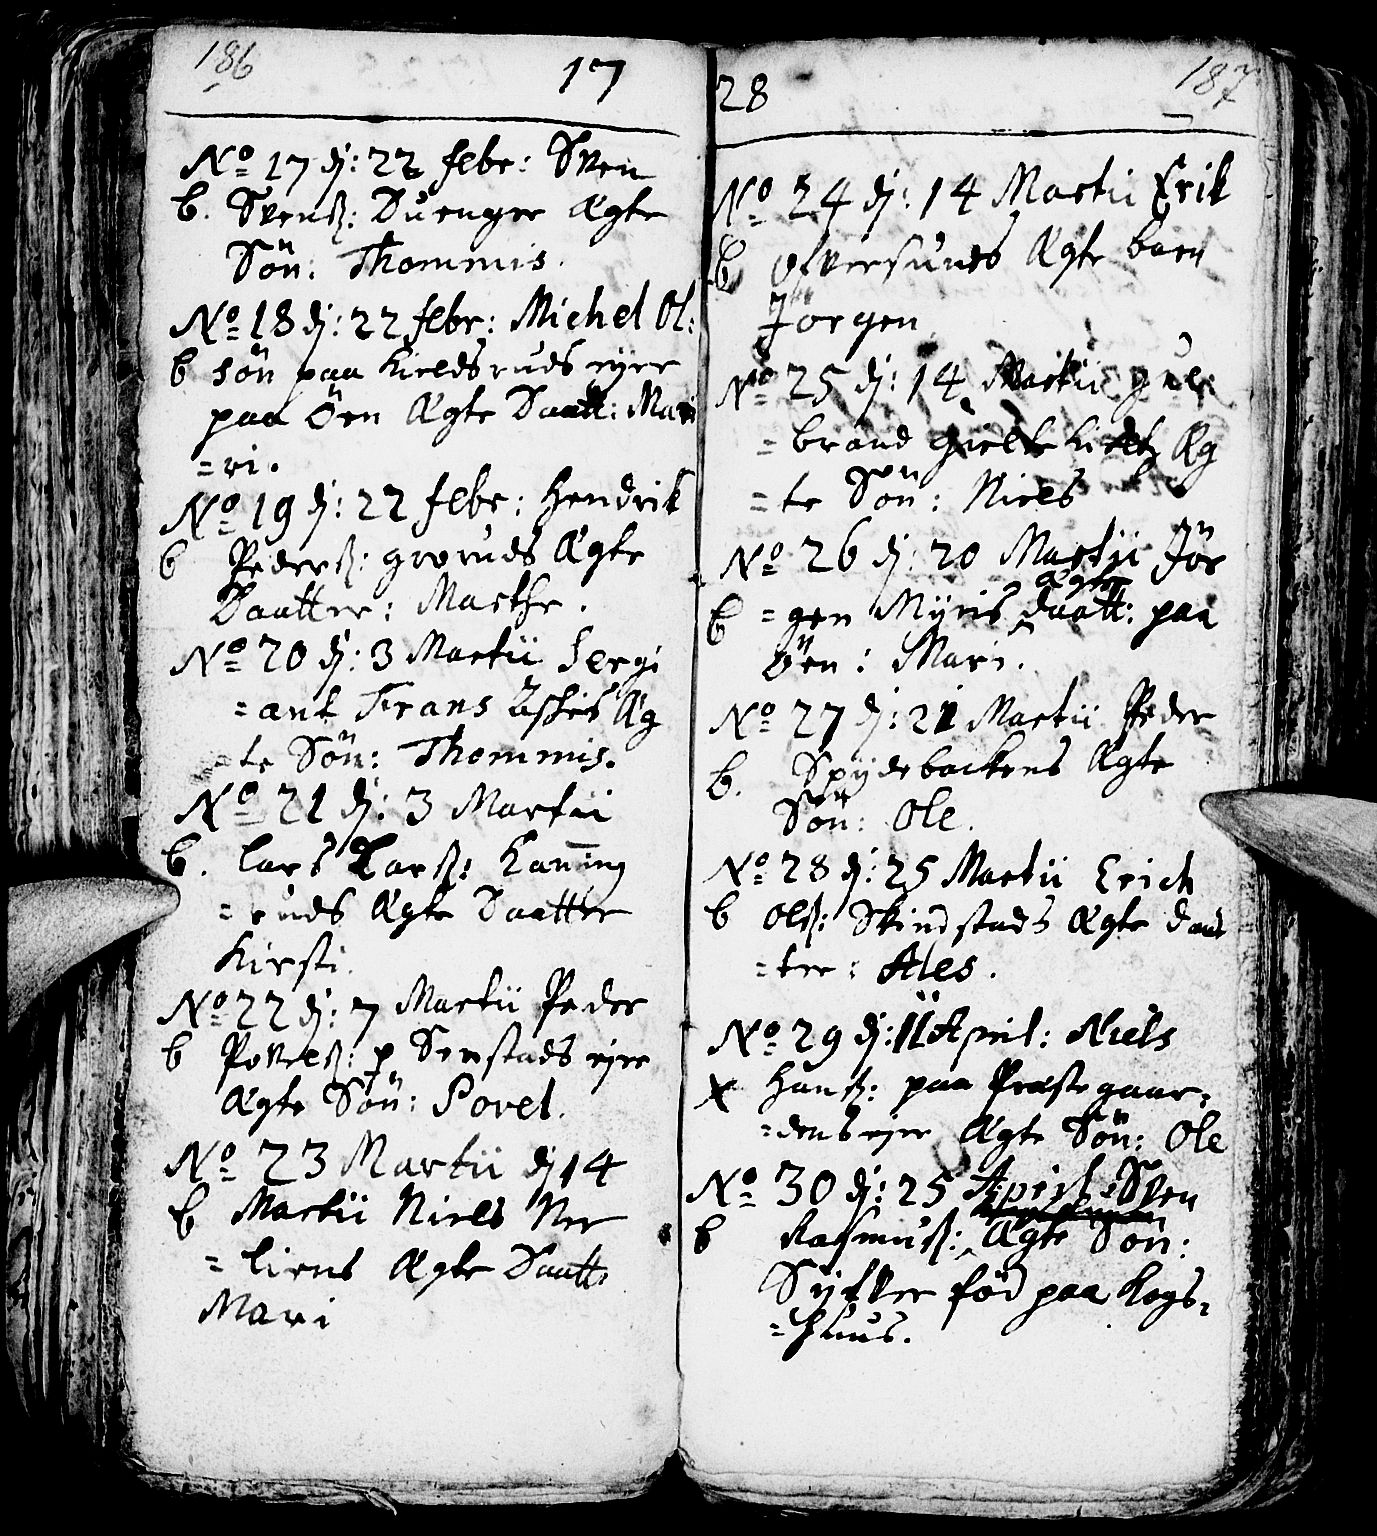 186
17
No 17 dj: 22 febr: Sven
b. Svenß: Duenger Ægte
Sön: Thommis.
No 18 dj: 22 febr: Michel Ol:
b sön paa Kieldsruds ejer
paa Öen Ægte Daatt: Mari
=ri.
No 19 dj: 22 febr: Hendrik
b Pederß: groruds Ægte
Daatter: Marthe.
No 20 dj: 3 Martii Sergi
=ant Frans Æg
=te Sön: Thommis.
No 21 dj: 3 Martii
b. Lars Larß: Kaning
=ruds Ægte Daatter
Kirsti.
No 22 dj: 7 Martii Peder
b Povelß: p Senstads ejer
Ægte Sön: Povel.
No 23 Martii dj 14
b Martii Niels Ner
=liens Ægte Daatt:
Mari
28
187
No 24 dj: 14 Martii Erik
b Ægte barn
Jörgen
No 25 dj: 14 Martii Gul
=brand Æg
=te Sön: Niels
No 26 dj: 20 Martii Jör
Ægte
b =gen Myris daatt: paa
Öen: Mari.
No 27 dj: 21 Martii Peder
b. Spydebackens Ægte
Sön: Ole.
No 28 dj: 25 Martii Erich
b Olß: Skindstads Ægte daat
=ter: Ales.
No 29 dj: 11 April: Niels
x Hanß: paa Præste gaar=
=dens ejer Ægte Sön: Ole
No 30 dj: 25 April: Sven
b Rasmusß: Ægte Sön:
Syfver föd paa Kogs=
=huus.